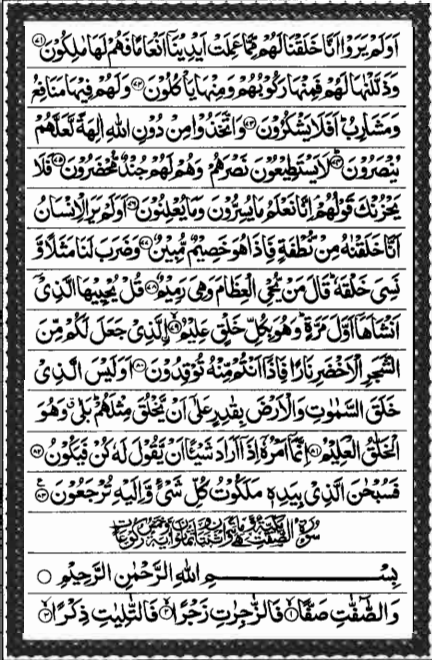 اَوَلَمْ يَرَوْا اَنَّا خَلَقْنَا لَهُمْ مِّمَّا عَمِلَتْ اَيْدِيْنَاۤ اَنْعَامًا فَهُمْ لَهَا مٰلِكُوْنَ ۝۷۱
وَذَلَّلْنٰهَا لَهُمْ فَمِنْهَا رَكُوْبُهُمْ وَمِنْهَا يَاْكُلُوْنَ ۝۷۲ وَلَهُمْ فِيْهَا مَنَافِعُ
وَمَشَارِبُ ؕ اَفَلَا يَشْكُرُوْنَ ۝۷۳ وَاتَّخَذُوْا مِنْ دُوْنِ اللّٰهِ اٰلِهَةً لَّعَلَّهُمْ
يُنْصَرُوْنَ ۝۷۴ لَا يَسْتَطِيْعُوْنَ نَصْرَهُمْ وَهُمْ لَهُمْ جُنْدٌ مُّحْضَرُوْنَ ۝۷۵ فَلَا
يَحْزُنْكَ قَوْلُهُمْ ۘ اِنَّا نَعْلَمُ مَا يُسِرُّوْنَ وَمَا يُعْلِنُوْنَ ۝۷۶ اَوَلَمْ يَرَ الْاِنْسَانُ
اَنَّا خَلَقْنٰهُ مِنْ نُّطْفَةٍ فَاِذَا هُوَ خَصِيْمٌ مُّبِيْنٌ ۝۷۷ وَضَرَبَ لَنَا مَثَلًا وَّ
نَسِيَ خَلْقَهٗ ؕ قَالَ مَنْ يُّحْيِ الْعِظَامَ وَهِيَ رَمِيْمٌ ۝۷۸ قُلْ يُحْيِيْهَا الَّذِيْۤ
اَنْشَاَهَاۤ اَوَّلَ مَرَّةٍ ؕ وَهُوَ بِكُلِّ خَلْقٍ عَلِيْمٌ ۝۷۹ اِۨلَّذِيْ جَعَلَ لَكُمْ مِّنَ
الشَّجَرِ الْاَخْضَرِ نَارًا فَاِذَاۤ اَنْتُمْ مِّنْهُ تُوْقِدُوْنَ ۝۸۰ اَوَلَيْسَ الَّذِيْ
خَلَقَ السَّمٰوٰتِ وَالْاَرْضَ بِقٰدِرٍ عَلٰۤى اَنْ يَّخْلُقَ مِثْلَهُمْ ؕ بَلٰى ۗ وَهُوَ
الْخَلّٰقُ الْعَلِيْمُ ۝۸۱ اِنَّمَاۤ اَمْرُهٗۤ اِذَاۤ اَرَادَ شَيْـًٔا اَنْ يَّقُوْلَ لَهٗ كُنْ فَيَكُوْنُ ۝۸۲
فَسُبْحٰنَ الَّذِيْ بِيَدِهٖ مَلَكُوْتُ كُلِّ شَيْءٍ وَّاِلَيْهِ تُرْجَعُوْنَ ۝۸۳
سورة الصّٰفّٰت مكية وهى مائة واثنتان وثمانون اٰية وخمس ركوعات
بِسْمِ اللّٰهِ الرَّحْمٰنِ الرَّحِيْمِ ۝
وَالصّٰٓفّٰتِ صَفًّا ۝۱ فَالزّٰجِرٰتِ زَجْرًا ۝۲ فَالتّٰلِيٰتِ ذِكْرًا ۝۳